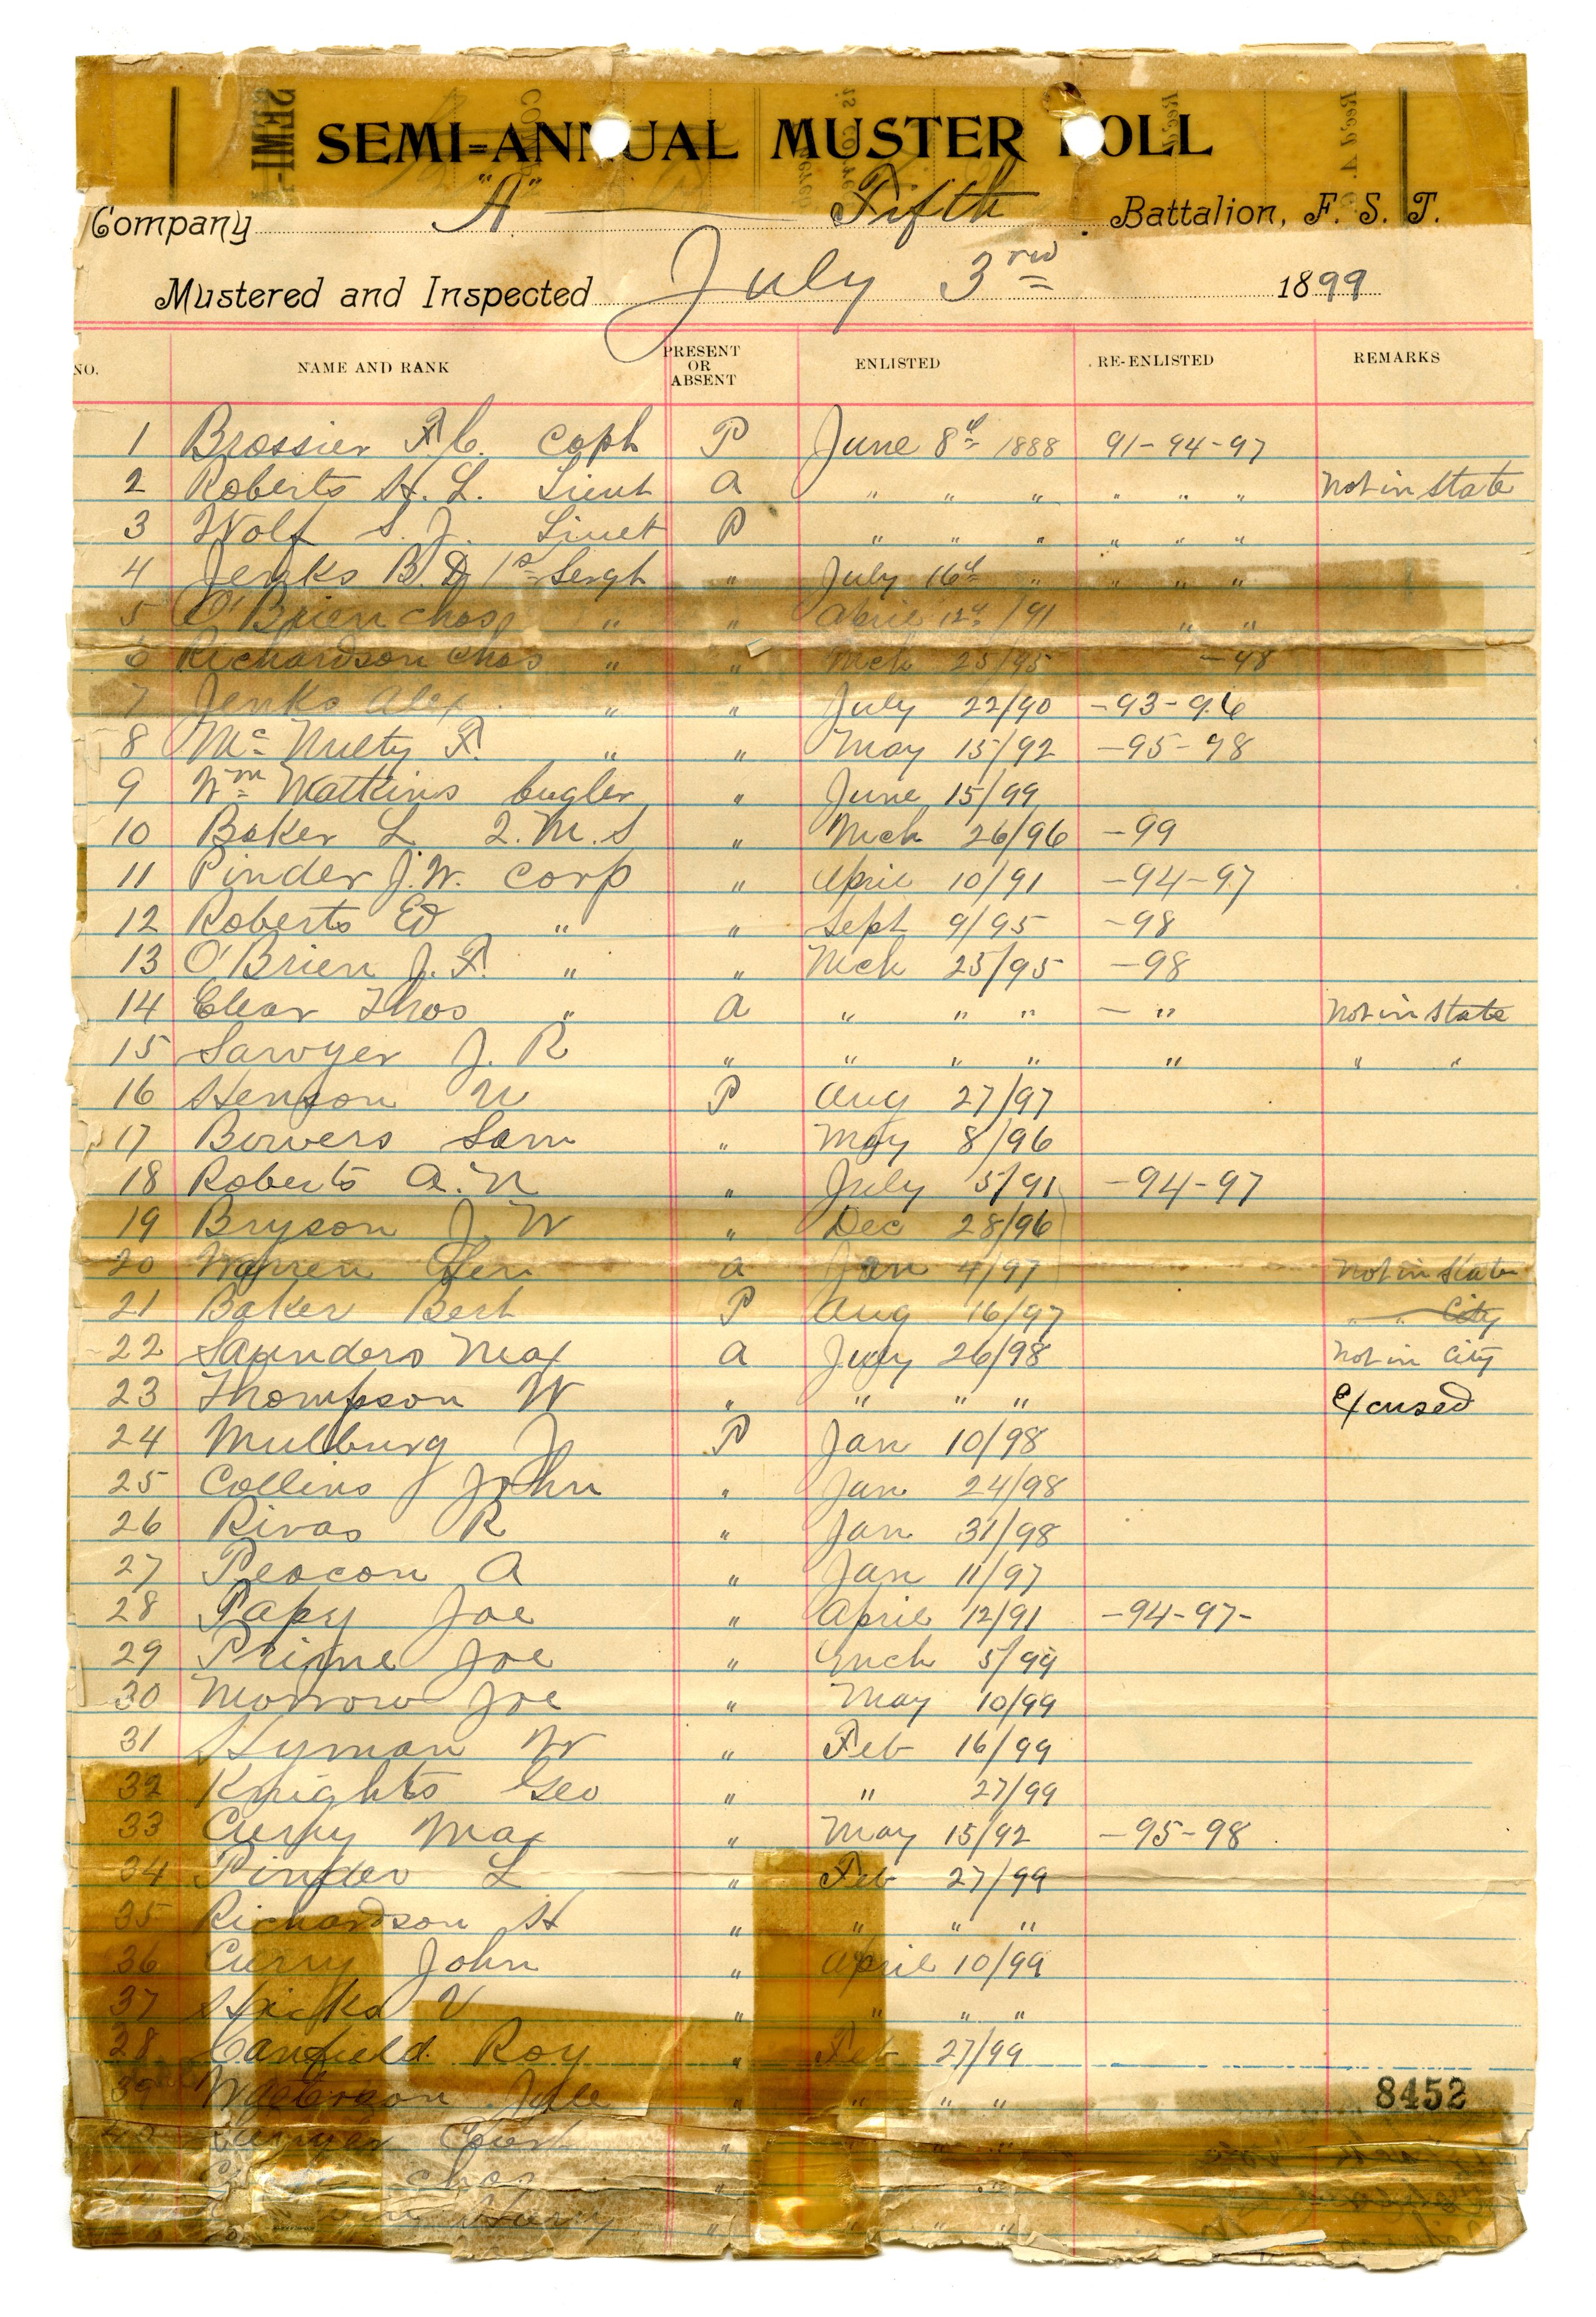 SEMI-ANNUAL MUSTER ROLL
Company "A" Fifth Battalion, F. S. T.
Mustered and Inspected July 3rd 1899
NO. NAME AND RANK PRESENT OR ABSENT ENLISTED RE-ENLISTED REMARKS
1 Brossier F. C. Capt P June 8th 1888 91-94-97
2 Roberts H. L. Lieut a " " " " " " Not in State
3 Wolf S. J. Liuet P " " " " " "
4 Jenks B. D. 1st Sergt " July 16th " " " "
5 O'Brien Chas " " April 12th /91 " "
6 Richardson Chas " " Mch 25/95 -98
7 Jenks Alex " " July 22/90 -93-96
8 Mc Nulty F. " " May 15/92 -95-98
9 Wm Watkins bugler " June 15/99
10 Baker L Q. M. S " Mch 26/96 -99
11 Pinder J. W. Corp " April 10/91 -94-97
12 Roberts Ed " " Sept 9/95 -98
13 O'Brien J. F. " " Mch 25/95 -98
14 Clear Thos " a " " " - " Not in State
15 Sawyer J. R " " " " " " "
16 Henson N P Aug 27/97
17 Bowers Sam " May 8/96
18 Roberts A. N " July 5/91 -94-97
19 Bryson J. W " Dec 28/96
20 Warren a Jan 4/97 Not in State
21 Baker Bert P Aug 16/97 " " City
22 Saunders Max a July 26/98 Not in City
23 Thompson W " " " " Excused
24 Mulburg J P Jan 10/98
25 Collins John " Jan 24/98
26 Rivas R " Jan 31/98
27 Peacon A " Jan 11/97
28 Papy Joe " April 12/91 -94-97-
29 Prime Joe " Mch 5/99
30 Morrow Joe " May 10/99
31 Hyman W " Feb 16/99
32 Knights Geo " " 27/99
33 Curry Max " May 15/92 -95-98
34 Pinder L " Feb 27/99
35 Richardson H " " " "
36 Curry John " April 10/99
37 Hicks V " " " "
38 Canfield Roy " Feb 27/99
39 " " " "
8452
40 " " " "
Chas " "
Harry " " " "